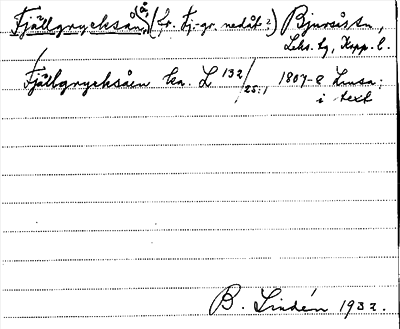 Fjällgrycksån, å, (fr. Fj-gr. nedåt?) Bjursås sn,
Leks. tg, Kopp. l.
Fjällgrycksåen ka. L 132/25:1 1807-8
i text
B. Lindén 1932.